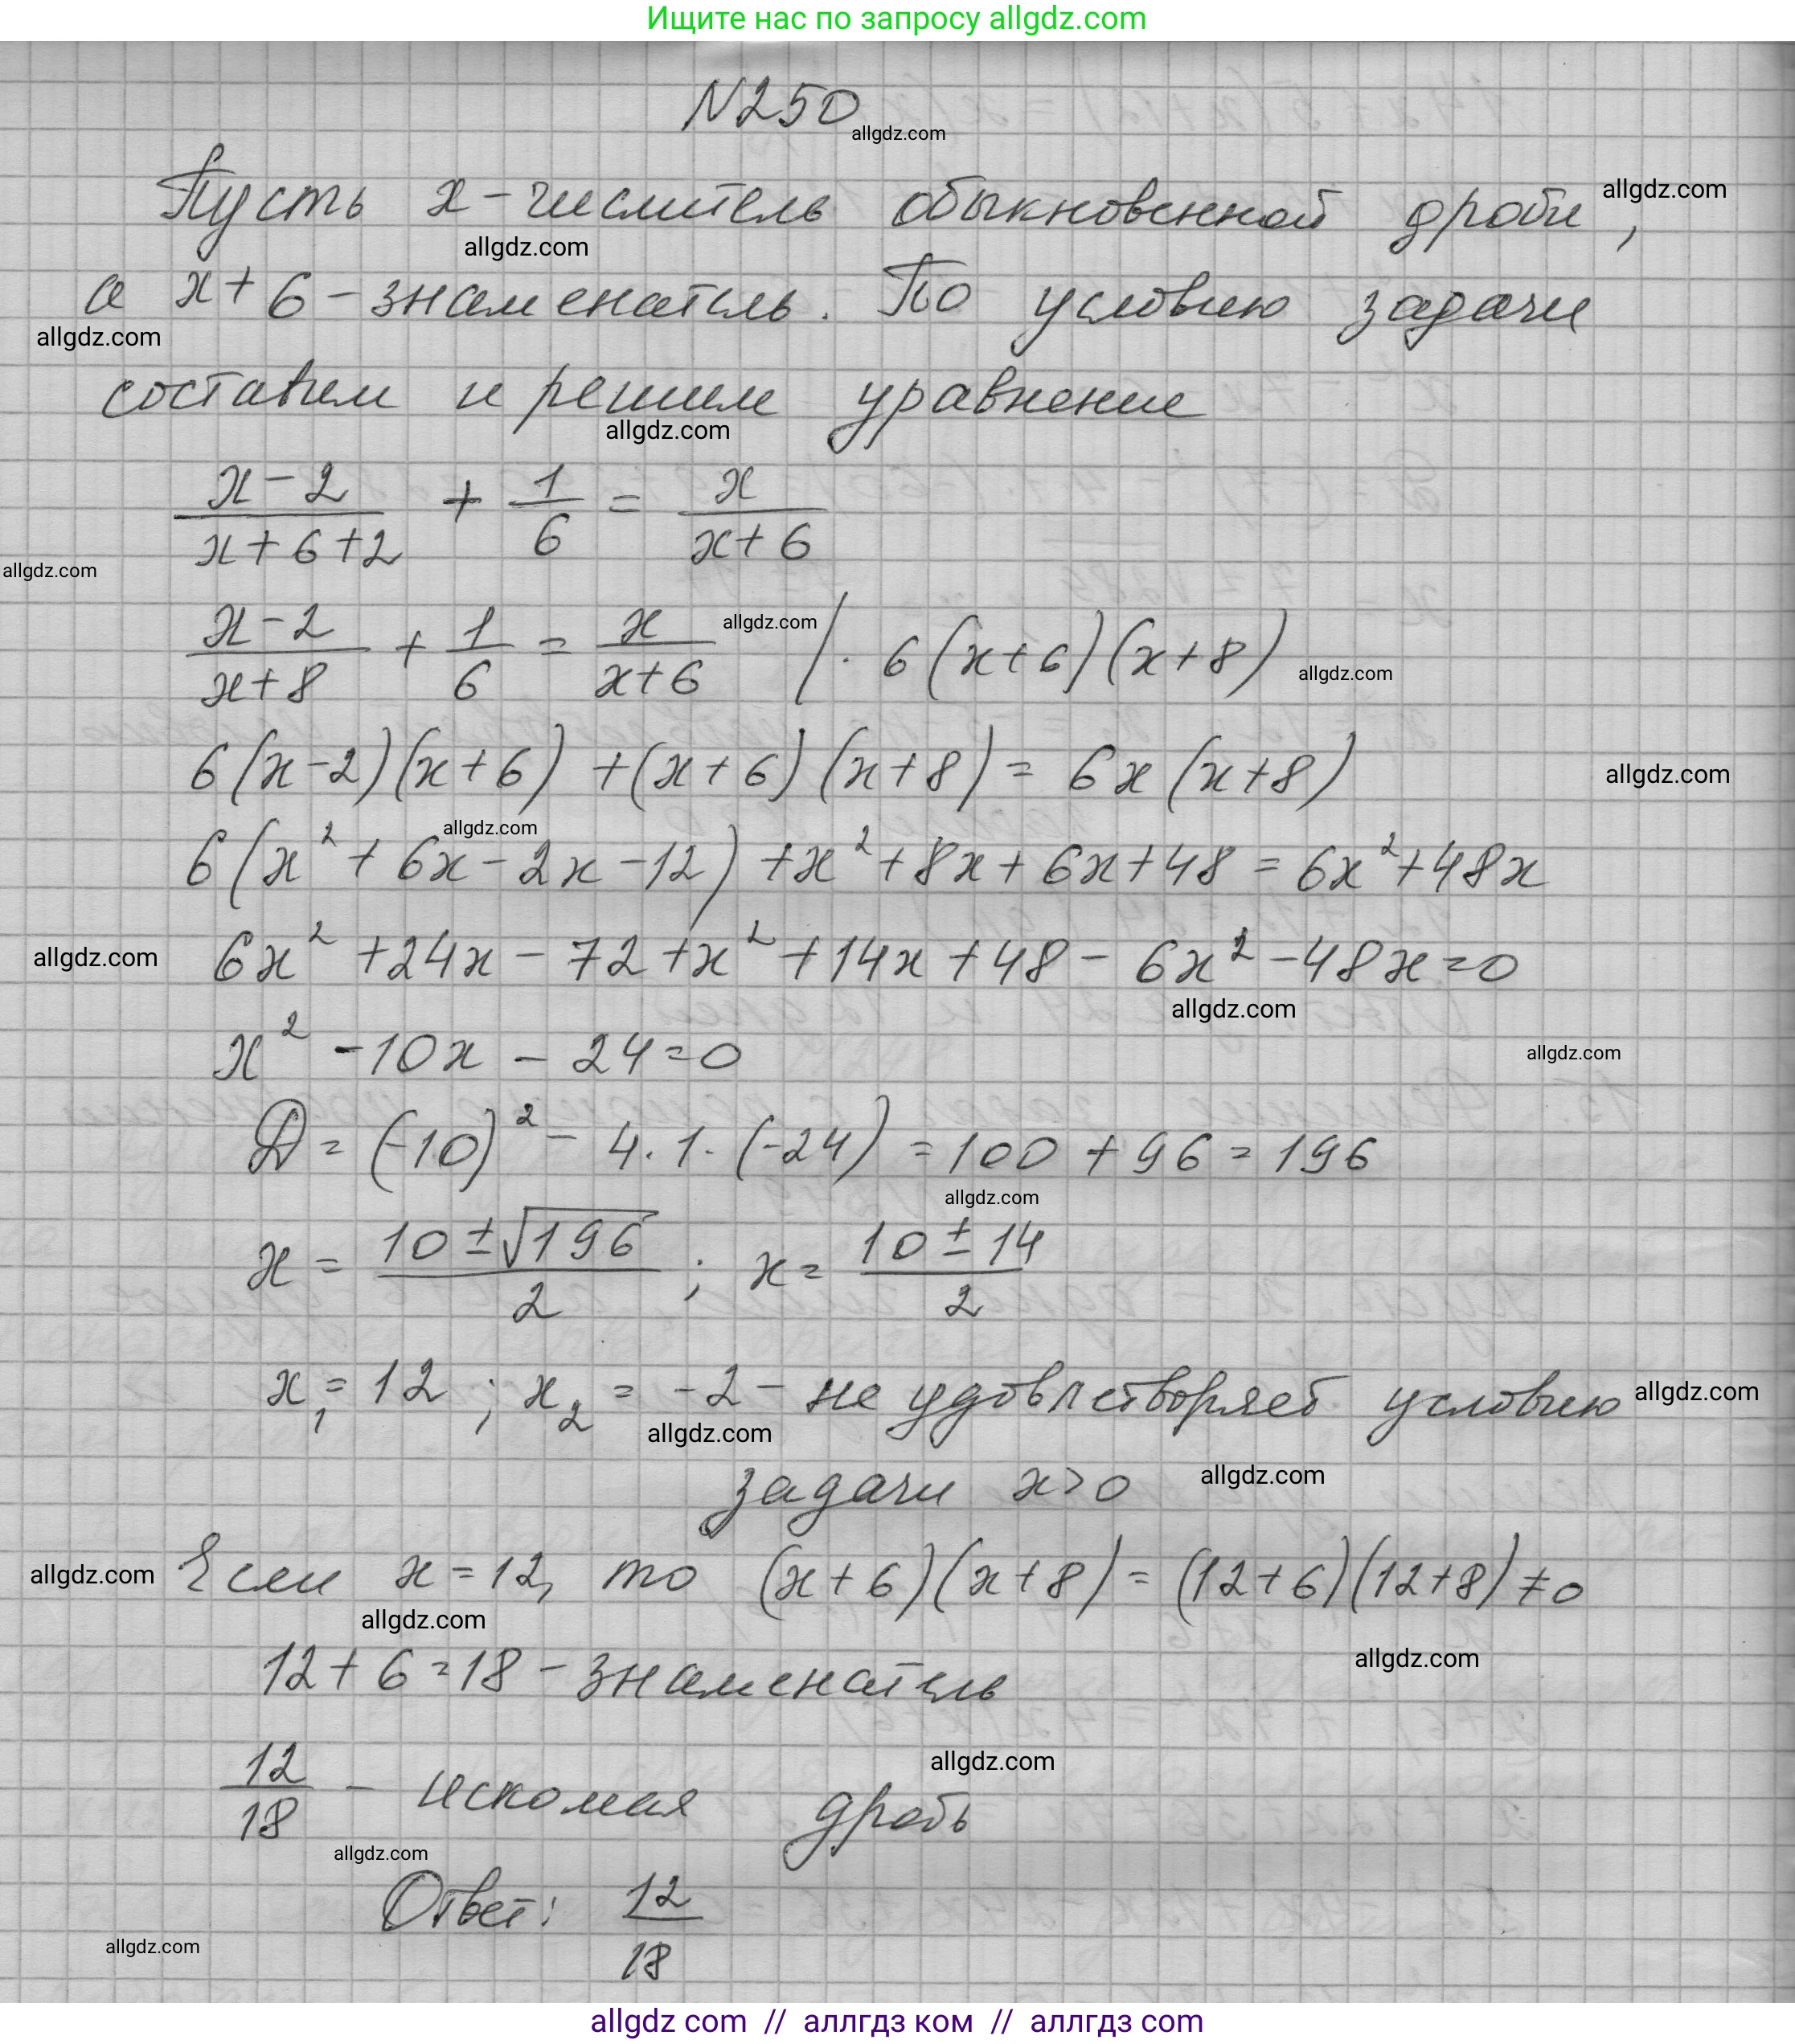 Ищите нас по запросу allgdz.com
N250
allgdz.com
Пусть x - числитель обыкновенной дроби,
allgdz.com
allgdz.com
а x + 6 - знаменатель. По условию задачи
allgdz.com
составим и решим уравнение
allgdz.com
(x - 2)/(x + 6 + 2) + 1/6 = x/(x + 6)
allgdz.com
(x - 2)/(x + 8) + 1/6 = x/(x + 6) allgdz.com / · 6(x+6)(x+8) allgdz.com
6(x-2)(x+6) + (x+6)(x+8) = 6x(x+8) allgdz.com
allgdz.com
6(x² + 6x - 2x - 12) + x² + 8x + 6x + 48 = 6x² + 48x
allgdz.com 6x² + 24x - 72 + x² + 14x + 48 - 6x² - 48x = 0
allgdz.com
x² - 10x - 24 = 0 allgdz.com
D = (-10)² - 4 · 1 · (-24) = 100 + 96 = 196
allgdz.com
x = (10 ± √196)/2 ; x = (10 ± 14)/2
x₁ = 12 ; x₂ = -2 - не удовлетворяет условию allgdz.com
allgdz.com
задачи x > 0 allgdz.com
allgdz.com Если x = 12, то (x+6)(x+8) = (12+6)(12+8) ≠ 0
allgdz.com
12 + 6 = 18 - знаменатель allgdz.com
allgdz.com
12/18 - искомая дробь
allgdz.com
Ответ: 12/18
allgdz.com
allgdz com // аллгдз ком // аллгдз com